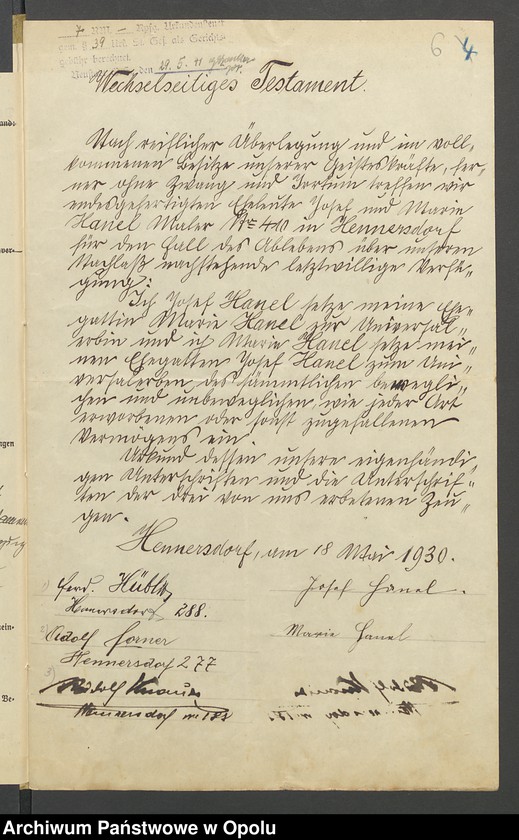 7 RM. — Rpfg. Urkundensteuer
gem. § 39 Urk. St. Ges. als Gerichts-
gebühr berechnet.
den 29. 5. 41
6 4
Wechselseitiges Testament.
Nach reiflicher Überlegung und im voll-
kommenen Besitze unserer Geisteskräfte, fer-
ner ohne Zwang und Irrtum treffen wir
endesgefertigten Eheleute Josef und Marie
Hanel Maler Nr 410 in Hennersdorf
für den Fall des Ablebens über unseren
Nachlaß nachstehende letztwillige Verfü-
gung:
Ich Josef Hanel setze meine Ehe-
gattin Marie Hanel zur Universal-
erbin und ich Marie Hanel setze mei-
nen Ehegatten Josef Hanel zum Uni-
versalerben des sämmtlichen bewegli-
chen und unbeweglichen, wie jeder Art
erworbenen oder sonst zugefallenen
Vermögens ein.
Urkund dessen unsere eigenhändi-
gen Unterschriften und die Unterschrif-
ten der drei von uns erbetenen Zeu-
gen.
Hennersdorf, am 18 Mai 1930.
1) Ferd. Hübl
Hennersdorf 288.
Josef Hanel.
2) Adolf Forner
Hennersdorf 277
Marie Hanel
3) Rudolf Knauer
Hennersdorf nr 188
Archiwum Państwowe w Opolu